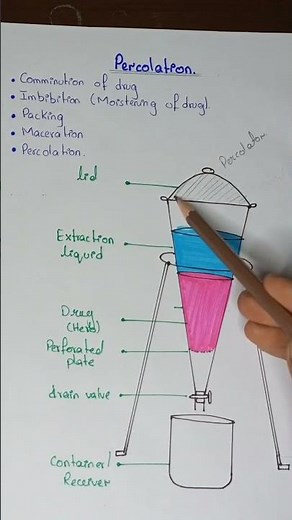 Percolation.
• Comminution of drug
• Imbibition (Moistering of drug).
• Packing
• Maceration
• Percolation.
Percolator
lid
Extraction
liquid
Drug
(Herb)
Perforated
plate
drain valve
Container/
Receiver